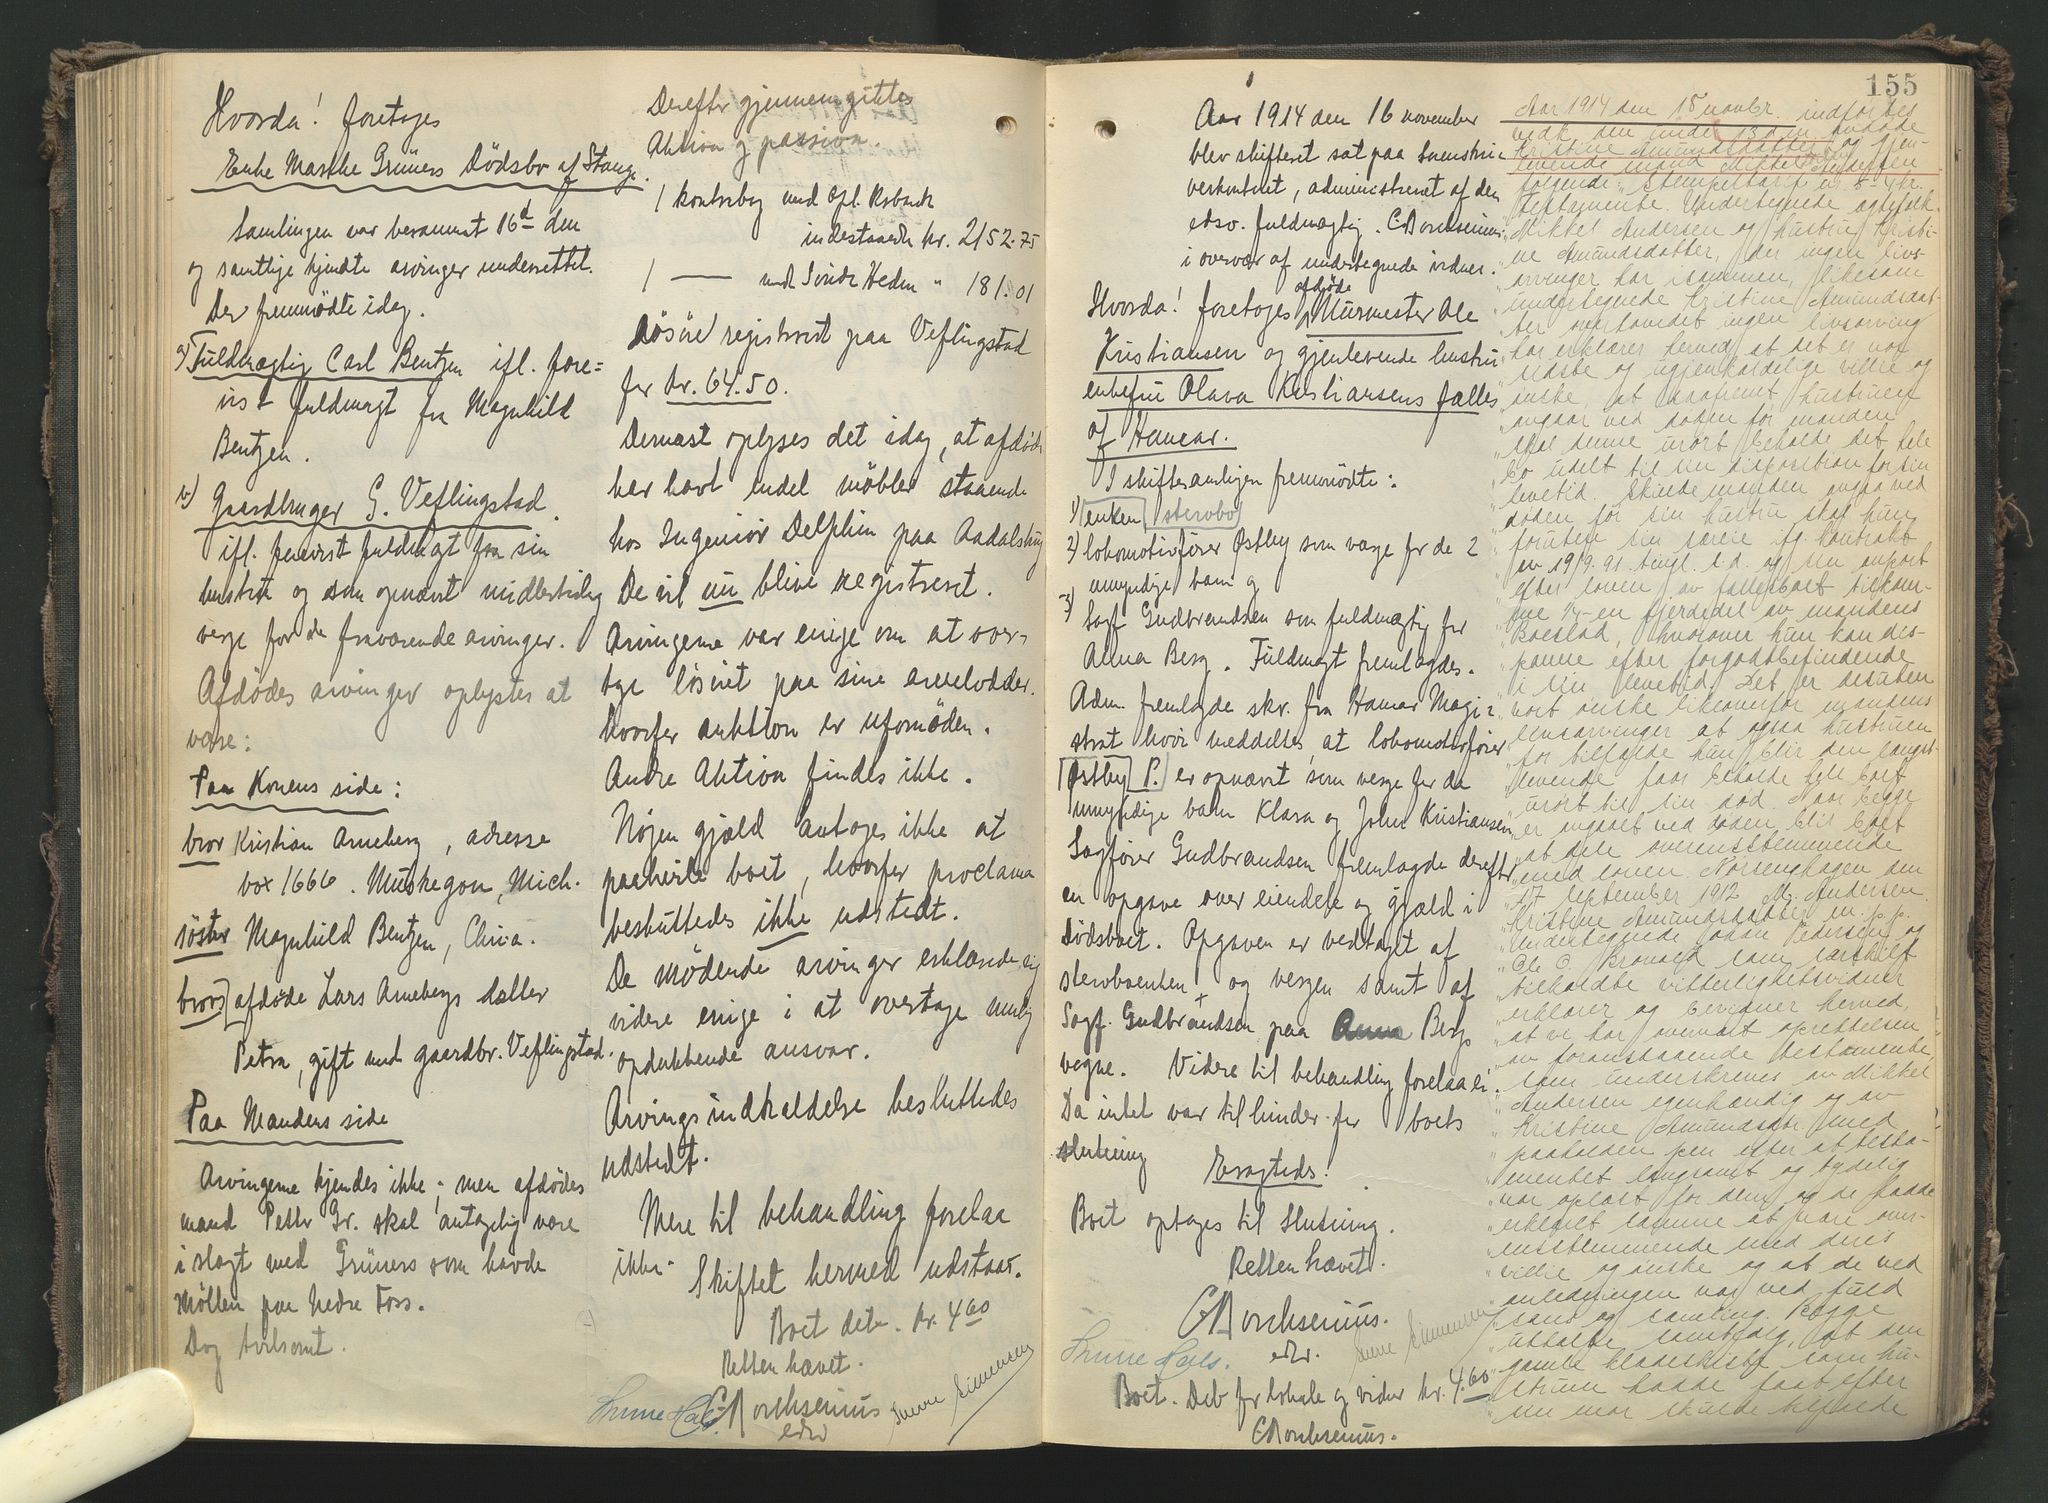 Hvorda! foretoges
Enke Marthe Grüners Dödsbo af Stange.
Samlingen var berammet 16d den
og samtlige kjendte arvinger underrettet.
Der fremmödte idag.
a) Fuldmægtig Carl Bentzen ifl. fore=
vist fuldmagt fra Magnhild
Bentzen.
b) Gaardbruger G. Veflingstad
ifl. forevist fuldmagt fra sin
hustru og som opnævnt midlertidig
verge for de fraværende arvinger.
Afdödes arvinger oplystes at
være:
Paa Konens side:
bror Kristian Arneberg, adresse
box 1666. Muskegon, Mich.
söster Magnhild Bentzen, China.
brors afdöde Lars Arnebergs datter
Petra, gift med gaardbr. Veflingstad.
Paa Mandens side
Arvingerne kjendes ikke; men afdödes
mand Petter Gr. skal antagelig være
i slægt med Grüners som havde
Möllen paa Nedre Foss.
Dog tvilsomt.
Derefter gjennemgikkes
Aktiva og passiva.
1 kontrabog med Opl. Ksbank
indestaaende kr. 2152.75
1 — med Söndr Hedm " 181.01
Lösöre registrert paa Veflingstad
for kr. 64.50.
Dernæst oplyses det idag, at afdöde
har havt endel möbler staaende
hos Ingeniör Delphin paa Aadalsbug
De vil nu blive registreret.
Arvingerne var enige om at over=
tage lösöret paa sine arvelodder.
hvorfor auktion er ufornöden.
Andre Aktiva findes ikke.
Nogen gjæld antages ikke at
paahvile boet, hvorfor proclama
besluttedes ikke udstedt.
De mödende arvinger erklærede sig
videre enige i at overtage mulig
opdukkende ansvar.
Arvingsindkaldelse besluttedes
udstedt.
Mere til behandling forelaa
ikke. Skiftet hermed udstaar.
Boet deb. kr. 4 60
Retten hævet.
CBorchsenius
edsv
Aar 1914 den 16 november
blev skifteret sat paa Sorenskri=
verkontoret, administreret af den
edsv. fuldmægtig. CBorchsenius
i overvær af undertegnede vidner.
afdöde
Hvorda! foretoges Murmester Ole
Kristiansen og gjenlevende hustru
enkefru Olava Kristiansens fælles
af Hamar.
I skiftesamlingen fremmödte:
1) enken stervbo
2) lokomotivförer Østby som verge for de 2
umyndige barn og
3) Sagf. Gudbrandsen som fuldmægtig for
Anna Berg. Fuldmagt fremlagdes.
Adm. fremlagde skr. fra Hamar Magi=
strat hvori meddeltes at lokomotivförer
Østby P. er opnævnt som verge for de
umyndige barn Klara og John Kristiansen
Sagförer Gudbrandsen fremlagde derefter
en opgave over eiendele og gjæld i
Dödsboet. Opgaven er vedtaget af
stervboenken og vergen samt af
Sagf. Gudbrandsen paa Anna Bergs
vegne. Videre til behandling forelaa ei.
Da intet var til hinder for boets
slutning
Eragtedes:
Boet optages til Slutning.
Retten hævet.
CBorchsenius.
edsv.
Boet. Deb for lokale og vidner kr. 4.60
CBorchsenius.
155
Aar 1914 den 18 novbr. indförtes
vedk. den under 13 d.m. avdöde
Kristine Amundsdatter og gjen-
levende mand Mikkel Andersen
fölgende "Stempeltarif
testamente. Undertegnede egtefolk.
"Mikkel Andersen og hustru Kristi-
"ne Amundsdatter, der ingen livs-
"arvinger har isammen, likesom
"undertegnede Kristine Amundsdat-
"ter overhovedet ingen livsarving
"har erklærer herved at det er vor
"sidste og ugjenkaldelige vilje og
"önske at saafremt hustruen
"avgaar ved döden för manden
"skal denne urört beholde det hele
"bo udelt til sin disposition for sin
"levetid. Skulde manden avgaa ved
"döden för sin hustru skal hun
"foruten sin særeie if. kontrakt
"av 19/9. 91. tingl. s.d. og sin anpart
"efter loven av fællesboet tilkom-
"me 1/4-en fjerdedel av mandens
"Boeslod, hvorover hun kan dis-
"ponere efter forgodtbefindende
"i sin levetid. Det er desuten
"vort önske likeoverfor mandens
"livsarvinger at ogsaa hustruen
"for tilfælde hun blir den længst-
"levende faar beholde hele boet
"urört til sin död. Naar begge
"er avgaaet ved döden blir boet
"at dele overensstemmende
"med loven. Norsenghagen den
"17 September 1912 M. Andersen
"Kristine Amundsdatter m.p.p.
"Undertegnede Johan Pedersen og
"Ole O. Bronald som særskilt
"tilkaldte vitterlighetsvidner
"erklærer og bevidner herved,
"at vi har overvært oprettelsen
"av foranstaaende testamente,
"som underskreves av Mikkel
"Andersen egenhændig og av
"Kristine Amundsdtr med
"paaholden pen efter at testa-
"mentet langsomt og tydelig
"var oplæst for dem og de hadde
"erklært samme at være over-
"ensstemmende med deres
"vilje og önske og at de ved
"anledningen var ved fuld
"sans og samling. Begge
"uttalte samtidig, at den
"gamle klædeskiste som hu-
"struen hadde faat efter
"sin mor skulde tilfalde